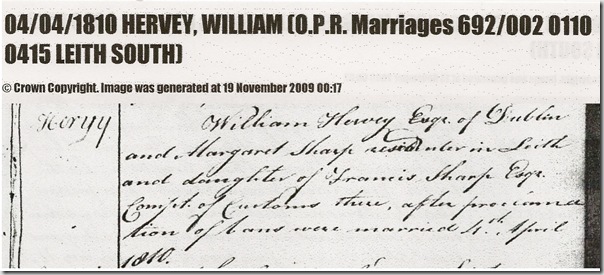 04/04/1810 HERVEY, WILLIAM (O.P.R. Marriages 692/002 0110
0415 LEITH SOUTH)
© Crown Copyright. Image was generated at 19 November 2009 00:17
Hervy William Hervey Esqr. of Dublin
and Margaret Sharp residenter in Leith
and daughter of Francis Sharp Esqr.
Compt. of Customs there, after proclama
tion of bans were married 4th. April
1810.